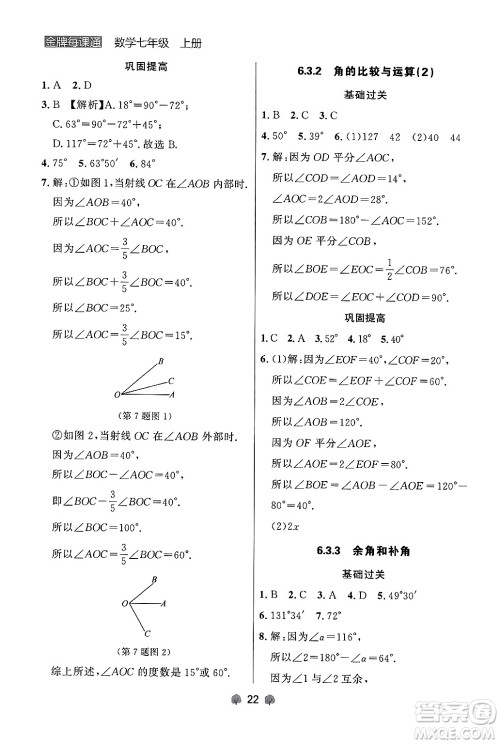 金牌每课通 数学七年级 上册
巩固提高
1. A 2. D
3. B 【解析】A. 18°=90°-72°;
C. 63°=90°-72°+45°;
D. 117°=72°+45°;故选 B
4. 75° 5. 63°50′ 6. 84°
7. 解:①如图 1,当射线 OC 在∠AOB 内部时.
因为∠AOB=40°,
所以∠BOC+∠AOC=40°.
因为∠AOC=3/5∠BOC,
所以∠BOC+3/5∠BOC=40°.
所以∠BOC=25°.
所以∠AOC=3/5∠BOC=15°.
B
C
O A
(第 7 题图 1)
②如图 2,当射线 OC 在∠AOB 外部时.
因为∠AOB=40°,
所以∠BOC-∠AOC=40°.
即∠BOC-3/5∠BOC=40°.
所以∠BOC=100°.
所以∠AOC=3/5∠BOC=60°.
B
O A
C
(第 7 题图 2)
综上所述,∠AOC 的度数是 15°或 60°.
6.3.2 角的比较与运算(2)
基础过关
1. B 2. C 3. C
4. 50° 5. 39° 6. (1)127 42 (2)40 44
7. 解:因为 OD 平分∠AOC,
所以∠COD=∠AOD=14°,
所以∠AOC=2∠AOD=28°.
所以∠COB=180°-∠AOC=152°.
因为 OE 平分∠COB,
所以∠BOE=∠COE=1/2∠COB=76°.
所以∠DOE=∠COD+∠COE=90°.
巩固提高
1. C 2. A 3. 52° 4. 18° 5. 40°
6. (1)解:因为∠EOF=40°,∠COF=20°,
所以∠COE=∠EOF-∠COF=20°.
因为∠AOC=90°,
所以∠AOE=∠AOC-∠COE=70°.
因为 OF 平分∠AOB,
所以∠AOF=∠BOF.
因为∠AOF=∠AOE+∠EOF=110°,
所以∠BOF=110°.
(2)2x
6.3.3 余角和补角
基础过关
1. B 2. C 3. A 4. D 5. 49°30′
6. 131°34′ 7. 120°
8. 解:因为∠α=116°,
所以∠β=180°-∠α=64°.
因为∠β与∠γ互余,
22